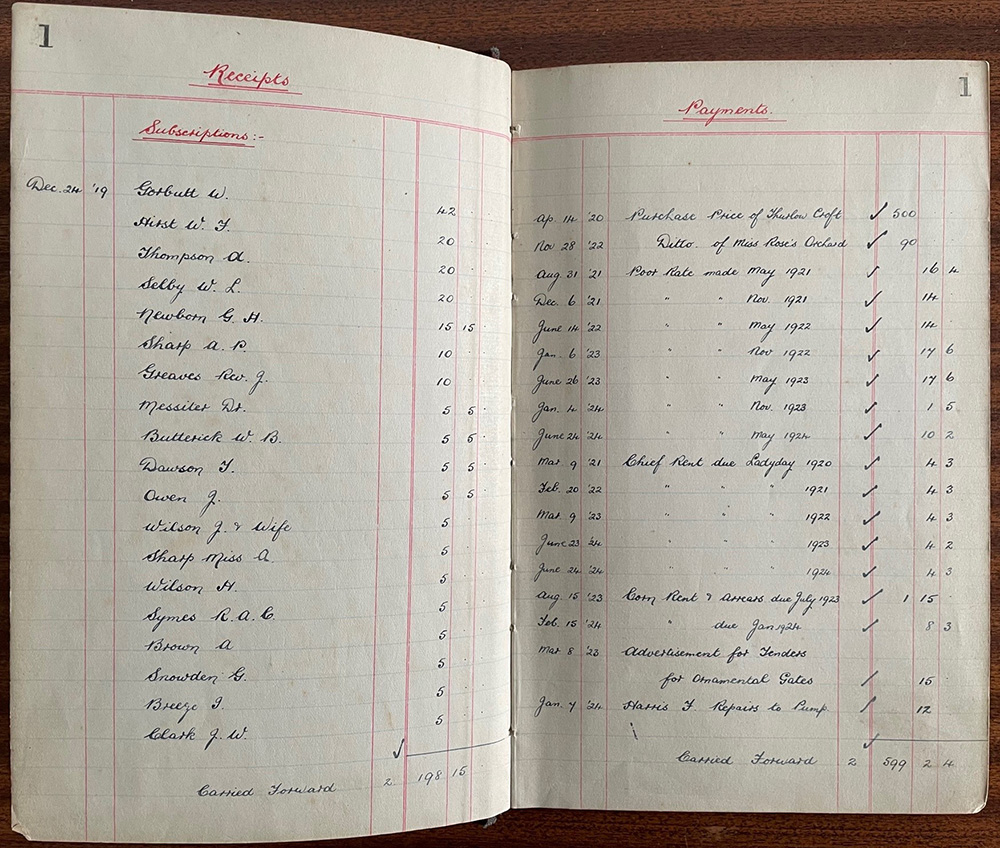 1
Receipts
Subscriptions:-
Dec. 24 '19 Gorbutt W. 42
Hirst W. F. 20
Thompson A. 20
Selby W. L. 20
Newborn G. H. 15 15
Sharp A. P. 10
Greaves Rev. J. 10
Messiter Dr. 5 5
Butterick W. B. 5 5
Dawson F. 5 5
Owen J. 5 5
Wilson J. & Wife 5
Sharp Miss A. 5
Wilson H. 5
Symes R. A. C. 5
Brown A 5
Snowden G. 5
Breeze I. 5
Clark J. W. 5
Carried Forward 2 198 15
1
Payments.
Ap. 14 '20 Purchase Price of Thurlow Croft ✓ 500
Nov 28 '22 Ditto. of Miss Rose's Orchard ✓ 90
Aug. 31 '21 Poor Rate made May 1921 ✓ 16 4
Dec. 6 '21 " " Nov. 1921 ✓ 14
June 14 '22 " " May 1922 ✓ 14
Jan. 6 '23 " " Nov 1922 ✓ 17 6
June 26 '23 " " May 1923 ✓ 17 6
Jan. 4 '24 " " Nov. 1923 ✓ 1 5
June 24 '24 " " May 1924 ✓ 10 2
Mar. 9 '21 Chief Rent due Ladyday 1920 ✓ 4 3
Feb. 20 '22 " " " 1921 ✓ 4 3
Mar. 9 '23 " " " 1922 ✓ 4 3
June 23 '24 " " " 1923 ✓ 4 2
June 24 '24 " " " 1924 ✓ 4 3
Aug. 15 '23 Corn Rent & Arrears due July 1923 ✓ 1 15
Feb. 15 '24 " due Jan 1924 ✓ 8 3
Mar 8 '23 Advertisement for Tenders
for Ornamental Gates ✓ 15
Jan. 7 '24 Harris F. Repairs to Pump. ✓ 12
Carried Forward 2 599 2 4